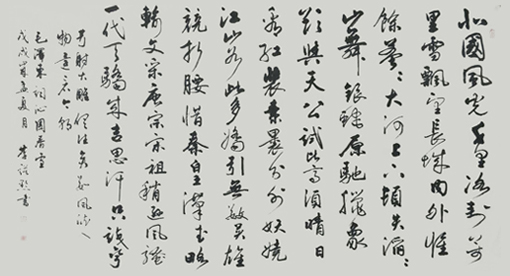 北國風光千里冰封萬
里雪飄望長城內外惟
餘莽莽大河上下頓失滔滔
山舞銀蛇原馳蠟象
欲與天公試比高須晴日
看紅裝素裹分外妖嬈
江山如此多嬌引無數英雄
競折腰惜秦皇漢武略
輸文采唐宗宋祖稍遜風騷
一代天驕成吉思汗只識彎
弓射大雕俱往矣數風流人
物還看今朝
毛澤東詞沁園春雪
戊戌年孟夏月
書